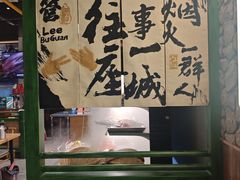 烟火一群人
事一城
往座
管
Lee
BuGuan